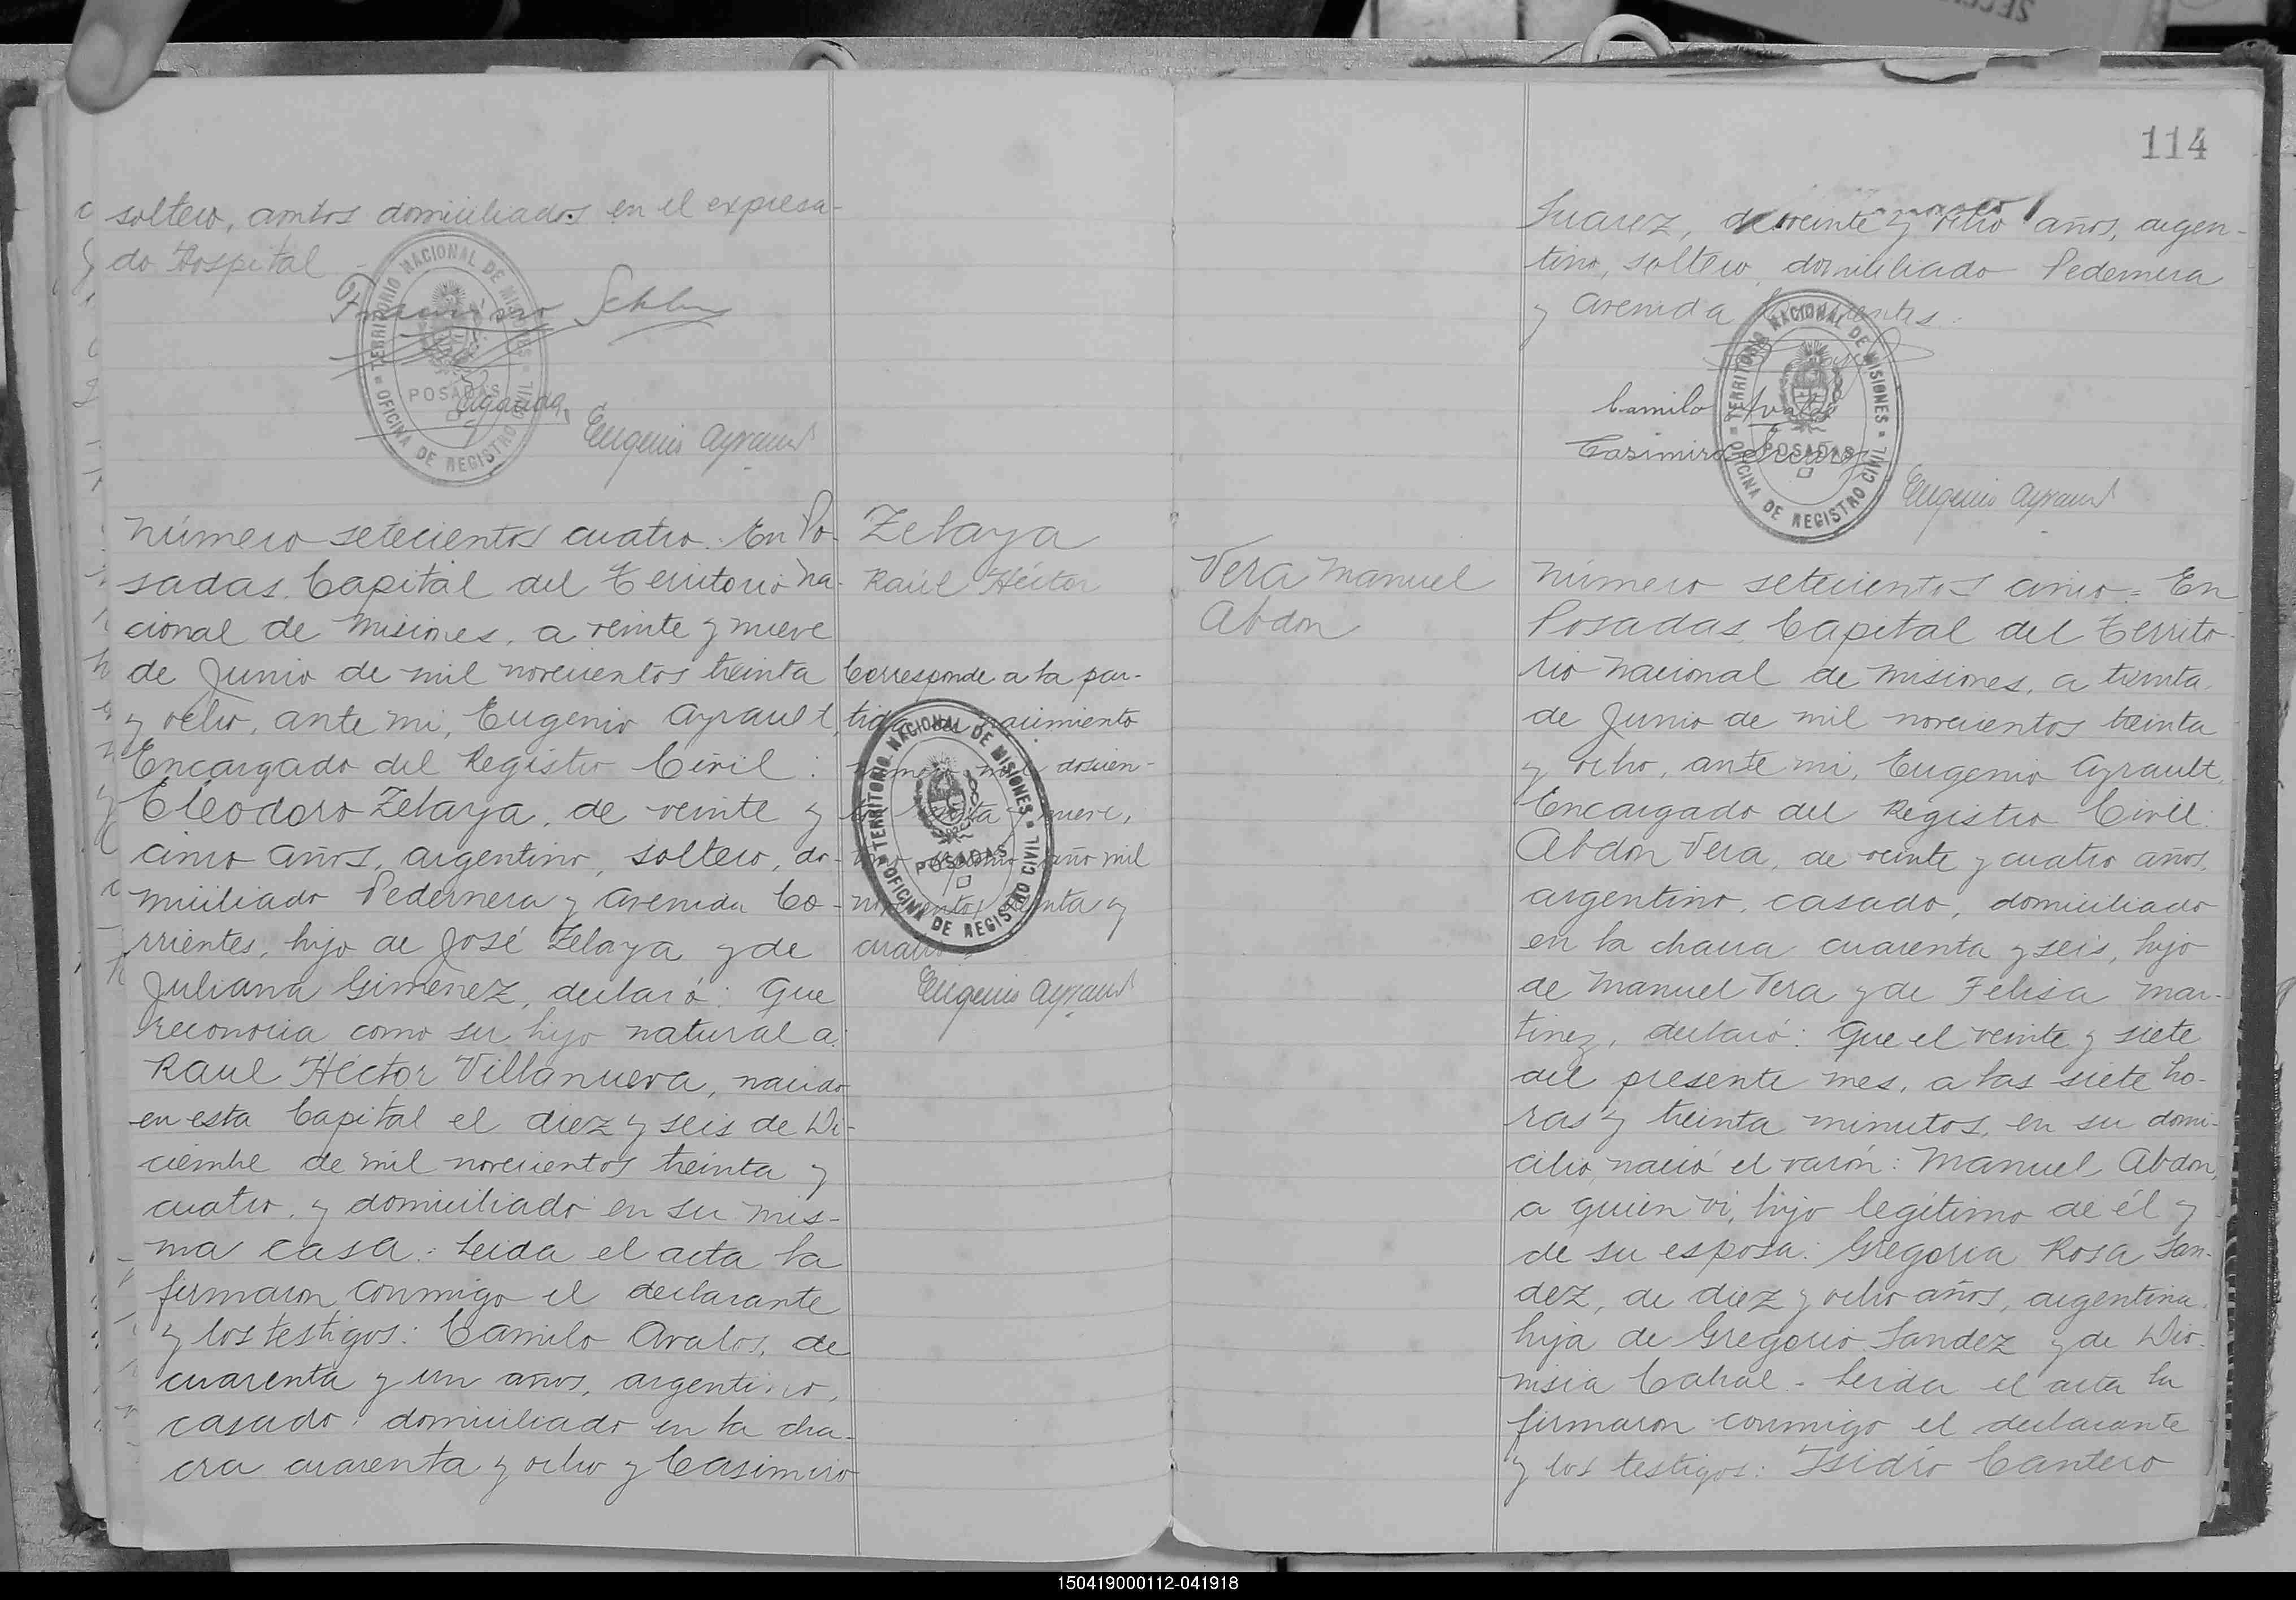 soltero, ambos domiciliados en el expresa-
do Hospital
TERRITORIO NACIONAL DE MISIONES
POSADAS
OFICINA DE REGISTRO CIVIL
Eugenio Ayrault
Número setecientos cuatro: En Po-
sadas, Capital del Territorio Na-
cional de Misiones, a veinte y nueve
de Junio de mil novecientos treinta
y ocho, ante mi, Eugenio Ayrault,
Encargado del Registro Civil:
Eleodoro Zelaya, de veinte y
cinco años, argentino, soltero, do-
miciliado Pedernera y Avenida Co-
rrientes, hijo de José Zelaya y de
Juliana Giménez, declaró: Que
reconocia como su hijo natural a:
Raul Héctor Villanueva, nacido
en esta Capital el diez y seis de Di-
ciembre de mil novecientos treinta y
cuatro, y domiciliado en su mis-
ma casa: Leida el acta la
firmaron conmigo el declarante
y los testigos: Camilo Avalos, de
cuarenta y un años, argentino,
casado, domiciliado en la cha-
cra cuarenta y ocho y Casimiro
Zelaya
Raúl Héctor
Corresponde a la par-
tida nacimiento
doscien-
nueve,
año mil
y
cuatro
TERRITORIO NACIONAL DE MISIONES
POSADAS
OFICINA DE REGISTRO CIVIL
Eugenio Ayrault
114
Suarez, de veinte y ocho años, argen-
tino, soltero, domiciliado Pedernera
y Avenida Corrientes.
TERRITORIO NACIONAL DE MISIONES
POSADAS
OFICINA DE REGISTRO CIVIL
Camilo Avalos
Casimiro Suarez
Eugenio Ayrault
Vera Manuel
Abdon
Número setecientos cinco: En
Posadas, Capital del Territo-
rio Nacional de Misiones, a treinta
de Junio de mil novecientos treinta
y ocho, ante mi, Eugenio Ayrault,
Encargado del Registro Civil:
Abdon Vera, de veinte y cuatro años,
argentino, casado, domiciliado
en la chacra cuarenta y seis, hijo
de Manuel Vera y de Felisa Mar-
tinez, declaró: Que el veinte y siete
del presente mes, a las siete ho-
ras y treinta minutos, en su domi-
cilio, nació el varón: Manuel Abdon,
a quien vi, hijo legítimo de él y
de su esposa: Gregoria Rosa San-
dez, de diez y ocho años, argentina,
hija de Gregorio Sandez y de Dio-
nisia Cabral - Leida el acta la
firmaron conmigo el declarante
y los testigos: Isidro Cantero
150419000112-041918